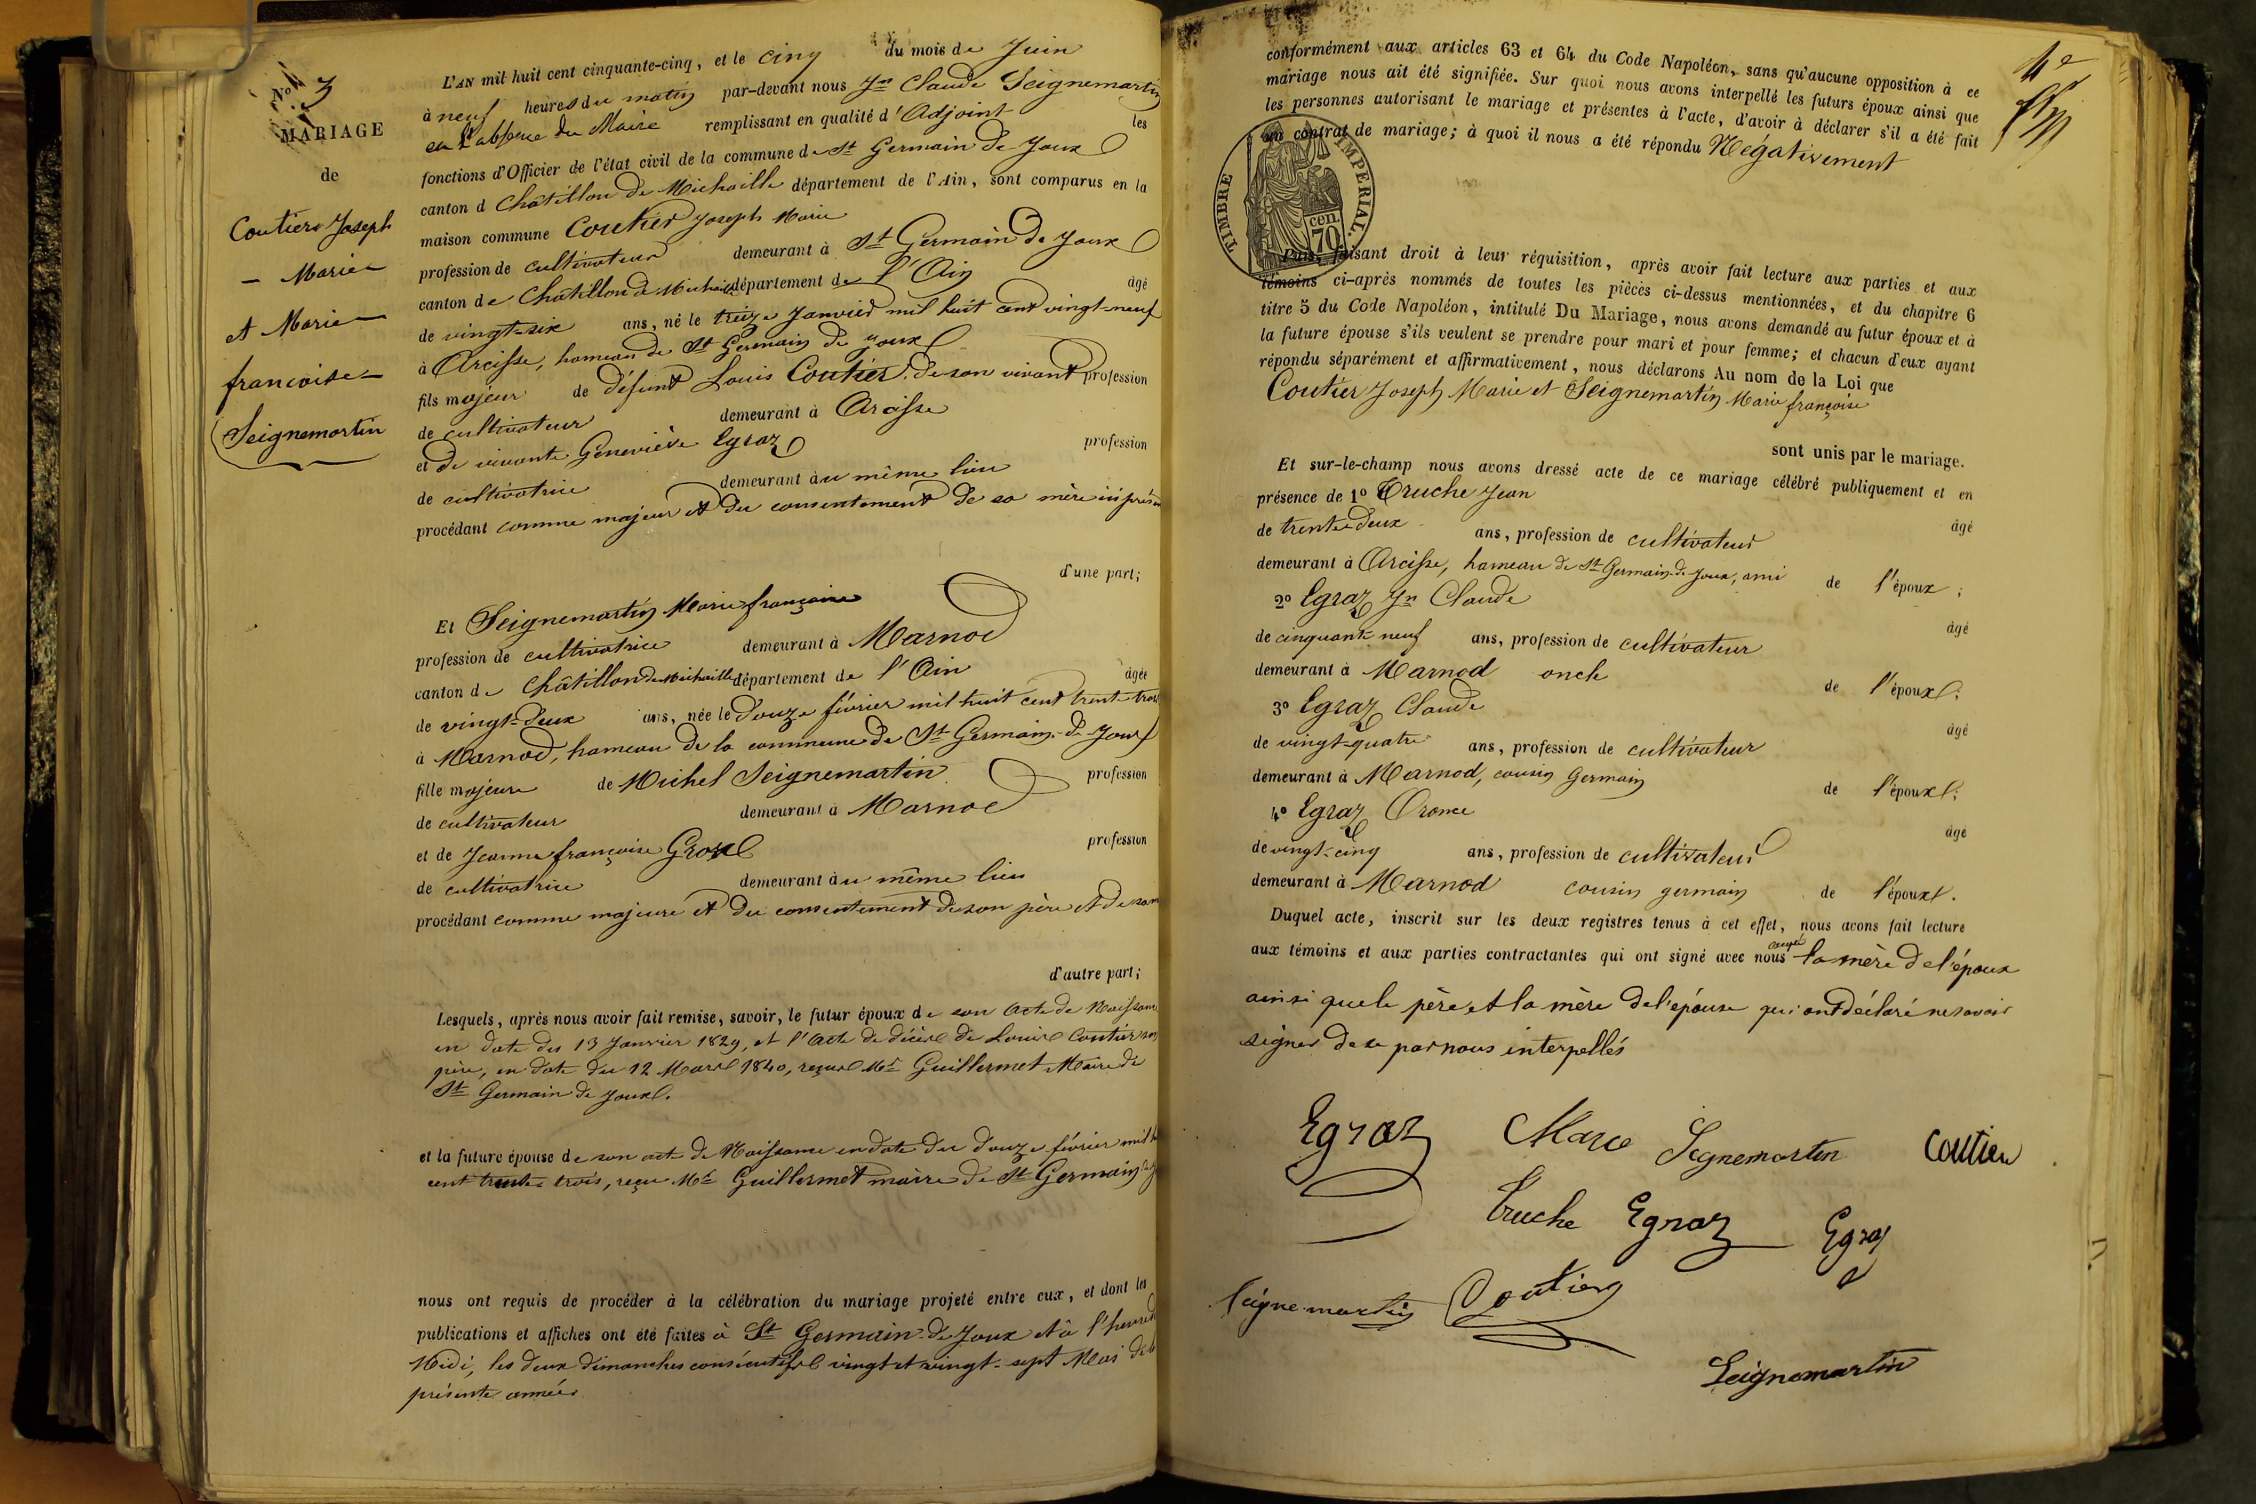 No 3
MARIAGE
de
Coutier Joseph
- Marie
et Marie
francoise
Seignemartin
L'AN mil huit cent cinquante-cinq, et le cinq du mois de Juin
à neuf heures du matin par-devant nous Jn Claude Seignemartin
en l'absence du Maire remplissant en qualité d'Adjoint les
fonctions d'Officier de l'état civil de la commune de St Germain de Joux
canton d Châtillon de Michaille département de l'Ain, sont comparus en la
maison commune Coutier Joseph Marie
profession de cultivateur demeurant à St Germain de Joux
canton de Châtillon de Michaille département de l'Ain âgé
de vingt-six ans, né le treize Janvier mil huit cent vingt-neuf
à Arcisse, hameau de St Germain de Joux
fils majeur de défunt Louis Coutier de son vivant profession
de cultivateur demeurant à Arcisse
et de vivante Geneviève Egraz profession
de cultivatrice demeurant au même lieu
procédant comme majeur et du consentement de sa mère ici
d'une part;
Et Seignemartin Marie françoise
profession de cultivatrice demeurant à Marnod
canton de Châtillon de Michaille département de l'Ain âgée
de vingt-deux ans, née le douze février mil huit cent trente trois
à Marnod, hameau de la commune de St Germain-de-Joux
fille majeure de Michel Seignemartin profession
de cultivateur demeurant à Marnod
et de Jeanne françoise Gros profession
de cultivatrice demeurant au même lieu
procédant comme majeure et du consentement de son père et de sa
d'autre part;
Lesquels, après nous avoir fait remise, savoir, le futur époux de son Acte de Naissance
en date du 13 Janvier 1829, et l'Acte de décès de Louis Coutier son
père, en date du 12 Mars 1840, reçus Mr Guillermet Maire de
St Germain de Joux.
et la future épouse de son acte de Naissance en date du douze février mil
cent trente trois, reçu Mr Guillermet maire de St Germain
nous ont requis de procéder à la célébration du mariage projeté entre eux, et dont les
publications et affiches ont été faites à St Germain-de-Joux et à l'heure de
Midi, les deux dimanches consécutifs vingt et vingt-sept Mai de la
présente année
conformément aux articles 63 et 64 du Code Napoléon, sans qu'aucune opposition à ce
mariage nous ait été signifiée. Sur quoi nous avons interpellé les futurs époux ainsi que
les personnes autorisant le mariage et présentes à l'acte, d'avoir à déclarer s'il a été fait
un contrat de mariage; à quoi il nous a été répondu Négativement
4e
TIMBRE IMPERIAL.
cen.
70
Puis, faisant droit à leur réquisition, après avoir fait lecture aux parties et aux
témoins ci-après nommés de toutes les pièces ci-dessus mentionnées, et du chapitre 6
titre 5 du Code Napoléon, intitulé Du Mariage, nous avons demandé au futur époux et à
la future épouse s'ils veulent se prendre pour mari et pour femme; et chacun d'eux ayant
répondu séparément et affirmativement, nous déclarons Au nom de la Loi que
Coutier Joseph Marie et Seignemartin Marie françoise
sont unis par le mariage.
Et sur-le-champ nous avons dressé acte de ce mariage célébré publiquement et en
présence de 1º Truche Jean âgé
de trente-deux ans, profession de cultivateur
demeurant à Arcisse, hameau de St Germain-de-Joux, ami de l'époux;
2º Egraz Jn Claude âgé
de cinquante neuf ans, profession de cultivateur
demeurant à Marnod oncle de l'époux;
3º Egraz Claude âgé
de vingt-quatre ans, profession de cultivateur
demeurant à Marnod, cousin Germain de l'époux;
4º Egraz Orance âgé
de vingt-cinq ans, profession de cultivateur
demeurant à Marnod cousin germain de l'époux.
Duquel acte, inscrit sur les deux registres tenus à cet effet, nous avons fait lecture
aux témoins et aux parties contractantes qui ont signé avec nous excepté la mère de l'époux
ainsi que le père et la mère de l'épouse qui ont déclaré ne savoir
signer de ce par nous interpellés
Egraz Marie Segnemarten Coutier
Truche Egraz Egraz
Seigne-martin Coutier
Seignemartin